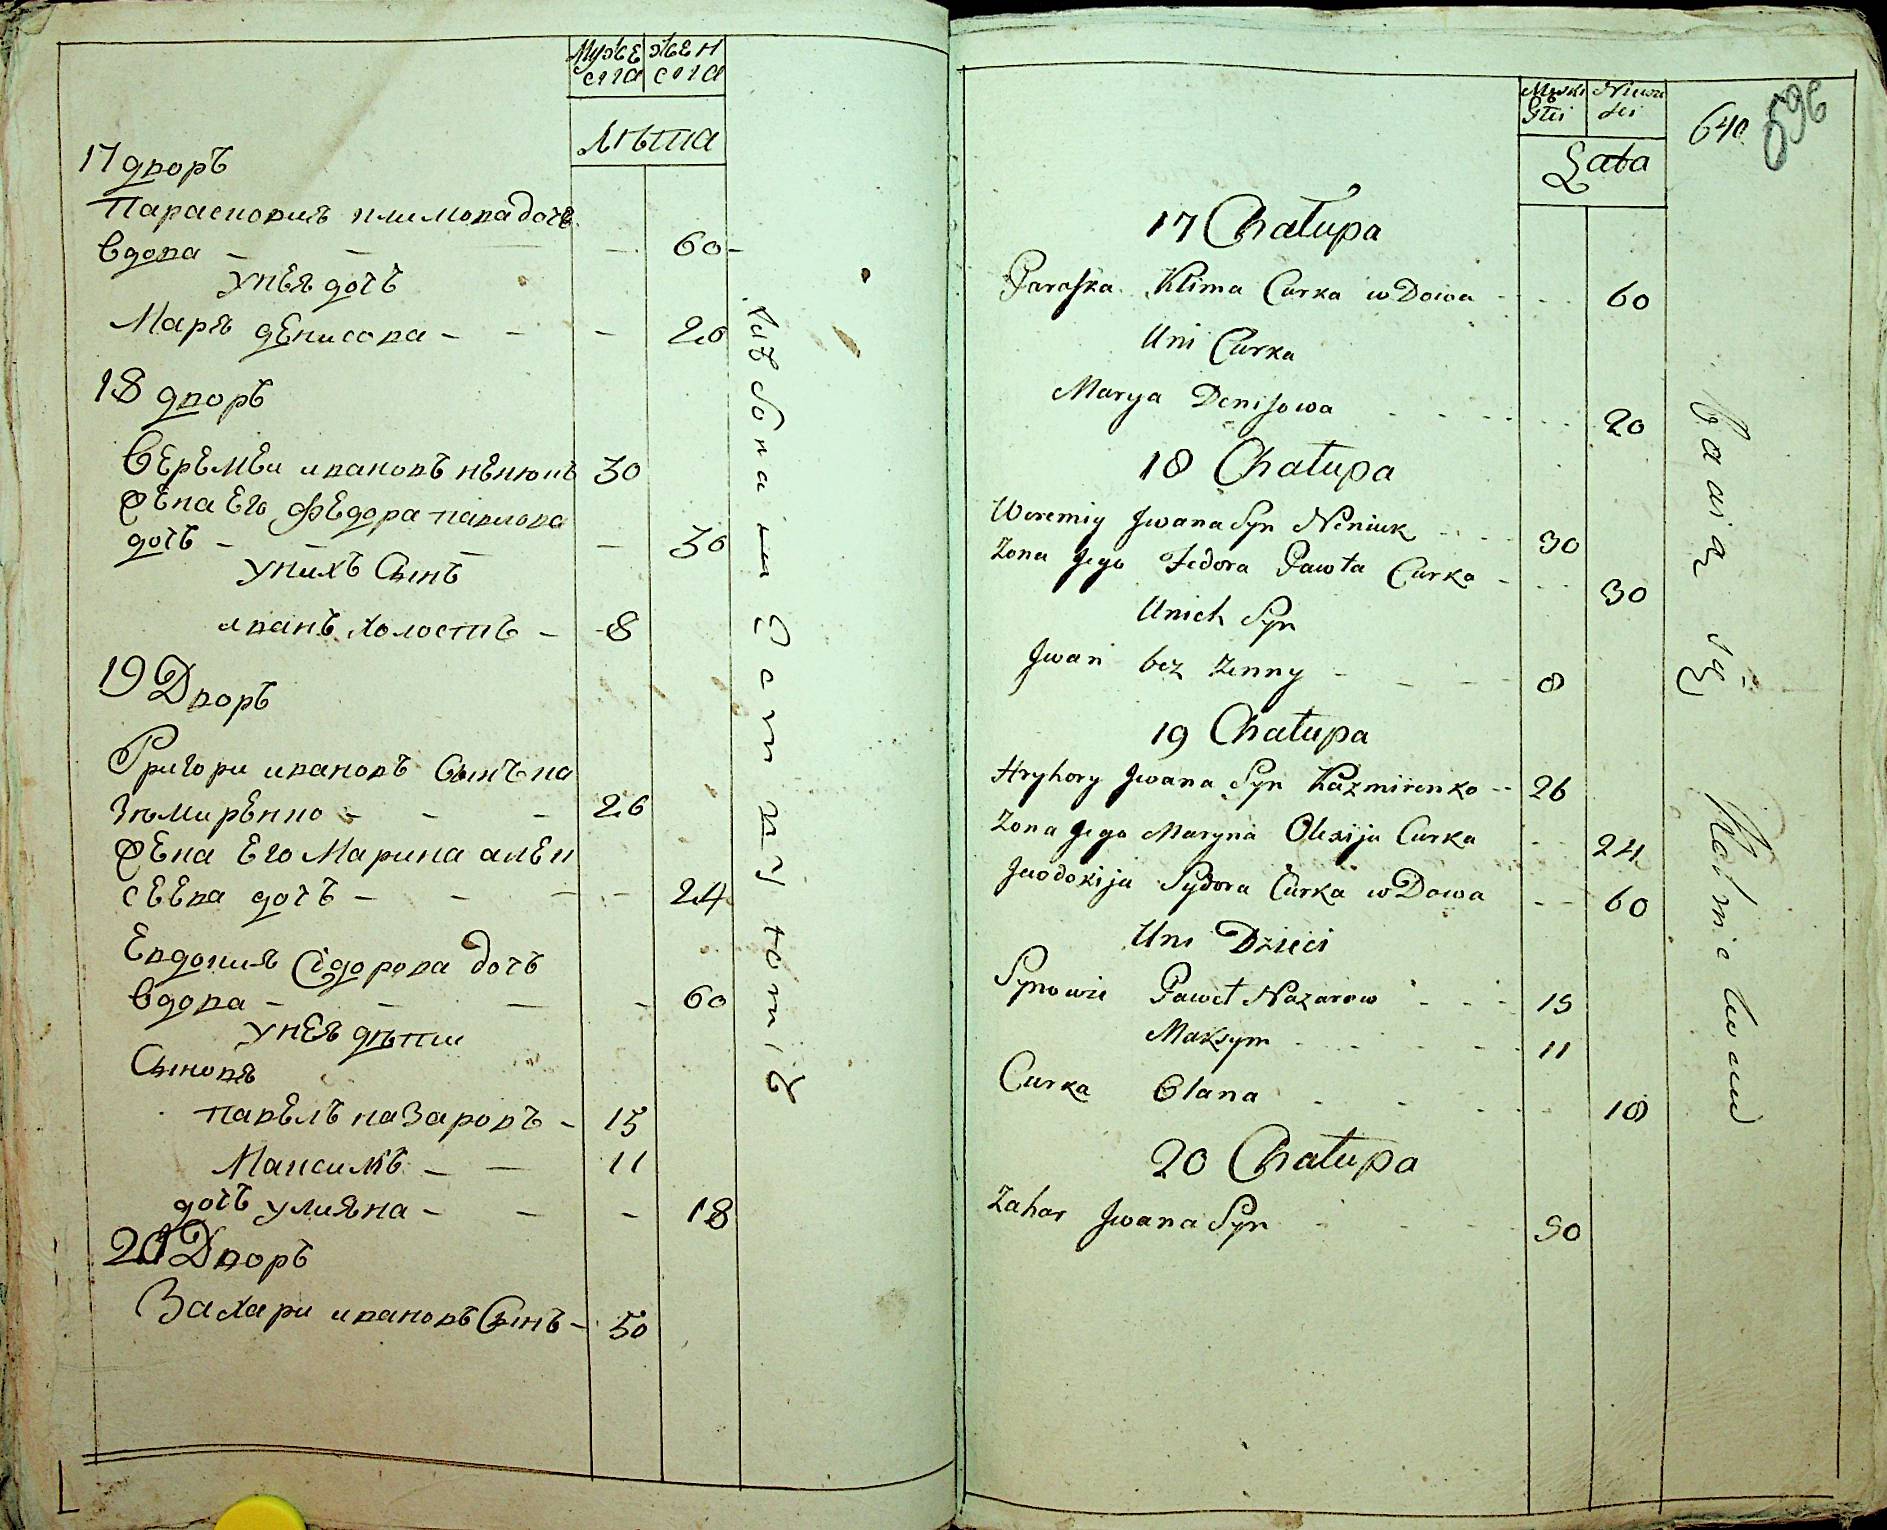 Муже жен
ска ска
Лѣта
17 дворъ
Парасковия климова дочь
вдова 60
у нея дочь
Маря денисова 20
18 дворъ
Веремѣи ивановъ ненюкъ 30
жена Его федора павлова
дочь 30
у нихъ Сынъ
иванъ холостъ 8
19 Дворъ
Григори ивановъ Сынъ ка
змиренко 26
жена Его Марина алек
сеева дочь 24
Евдокия Сідорова дочь
вдова 60
у нея дѣти
Сыновя
павелъ назаровъ 15
Максимъ 11
дочь улияна 18
20 Дворъ
Захари ивановъ Сынъ 50
640
596
Lata
17 Chałupa
Paraska Klima Curka wDowa 60
Uni Curka
Marya Denisowa 20
18 Chałupa
Weremiy Jwana Syn Neniuk 30
Zona Jego Fedora Pawła Curka 30
Unich Syn
Jwan bez Zenny 8
19 Chałupa
Hryhory Jwana Syn Kazmirenko 26
Zona Jego Maryna Olexija Curka 24
Jwdokija Sydora Curka wDowa 60
Uni Dzieci
Synowie Paweł Nazarow 15
Maksym 11
Curka Olana 18
20 Chałupa
Zahar Jwana Syn 50